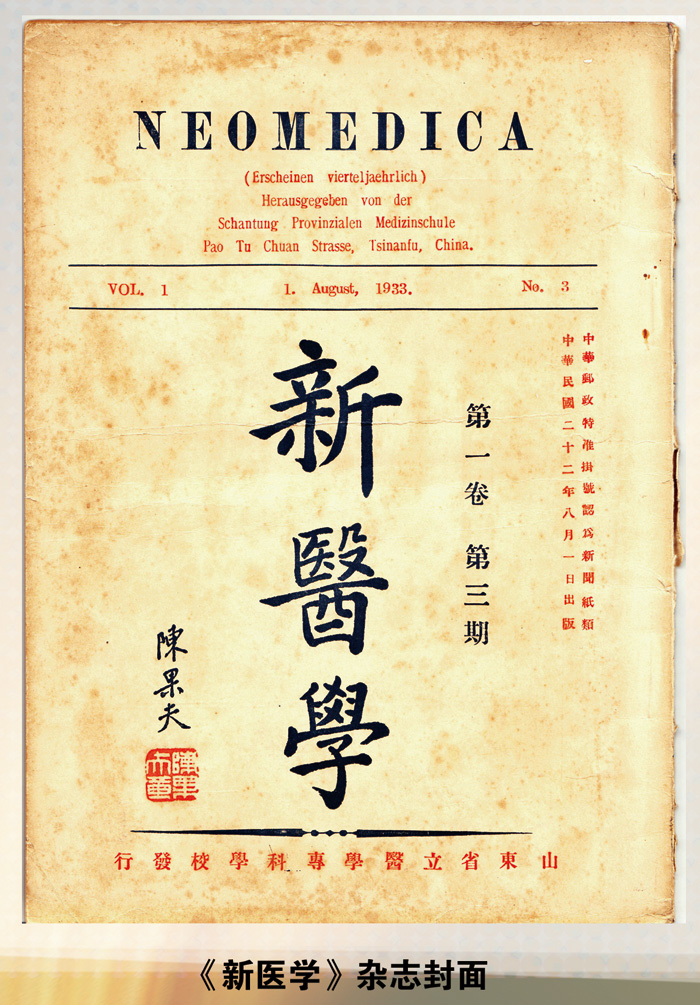 NEOMEDICA
(Erscheinen vierteljaehrlich)
Herausgegeben von der
Schantung Provinzialen Medizinschule
Pao Tu Chuan Strasse, Tsinanfu, China.
VOL. 1 1. August, 1933. No. 3
中華郵政特准掛號認爲新聞紙類
中華民國二十二年八月一日出版
第一卷 第三期
新醫學
陳果夫
山東省立醫學專科學校發行
《新医学》杂志封面